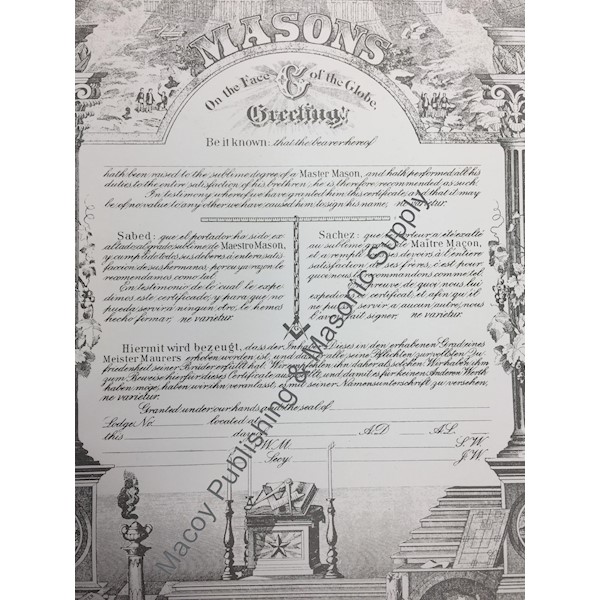 MASONS
On the Face of the Globe
Greeting!
Be it known: that the bearer hereof
hath been raised to the sublime degree of a Master Mason, and hath performed all his
duties to the entire satisfaction of his brethren, he is therefore recommended as such.
In testimony whereof we have granted him this certificate, and that it may
be of no value to any other we have caused him to sign his name, ne varietur.
Sabed: que el portador ha sido ex
altado al grado sublime de Maestro Mason,
y cumplido todos sus deberes á entera satis
faccion de sus hermanos, por cuya razon le
recomendamos como tal.
En testimonio de lo cual le expe
dimos este certificado, y para que no
pueda servir á ningun otro, le hemos
hecho firmar, ne varietur.
Sachez: que porteur a été exalté
au sublime de Maître Maçon,
et a rempli devoirs à l'entière
satisfaction de ses frères, c'est pour
quoi nous recommandons comme tel.
preuve, de quoi nous, lui
expedions certificat, et afin qu'il
ne puisse servir à aucun autre, nous
l'avons fait signer, ne varietur.
Hiermit wird bezeugt, dass der Inhaber Dieses in den erhabenen Grad eines
Meister Maurers erhoben worden ist, und dass er alle seine Pflichten zur vollsten Zu
friedenheit seiner Brüder erfüllt hat. Wir empfehlen ihn daher als solchen. Wir haben ihm
zum Beweise hierfür dieses Certificate ausgestellt, und damit es für keinen Anderen Werth
haben möge, haben wir ihn veranlasst, es mit seiner Namensunterschrift zu versehen,
ne varietur.
Granted under our hands and the seal of
Lodge No. located at
this day of A.D. A.L.
W.M. S.W.
Secy. J.W.
Macoy Publishing & Masonic Supply